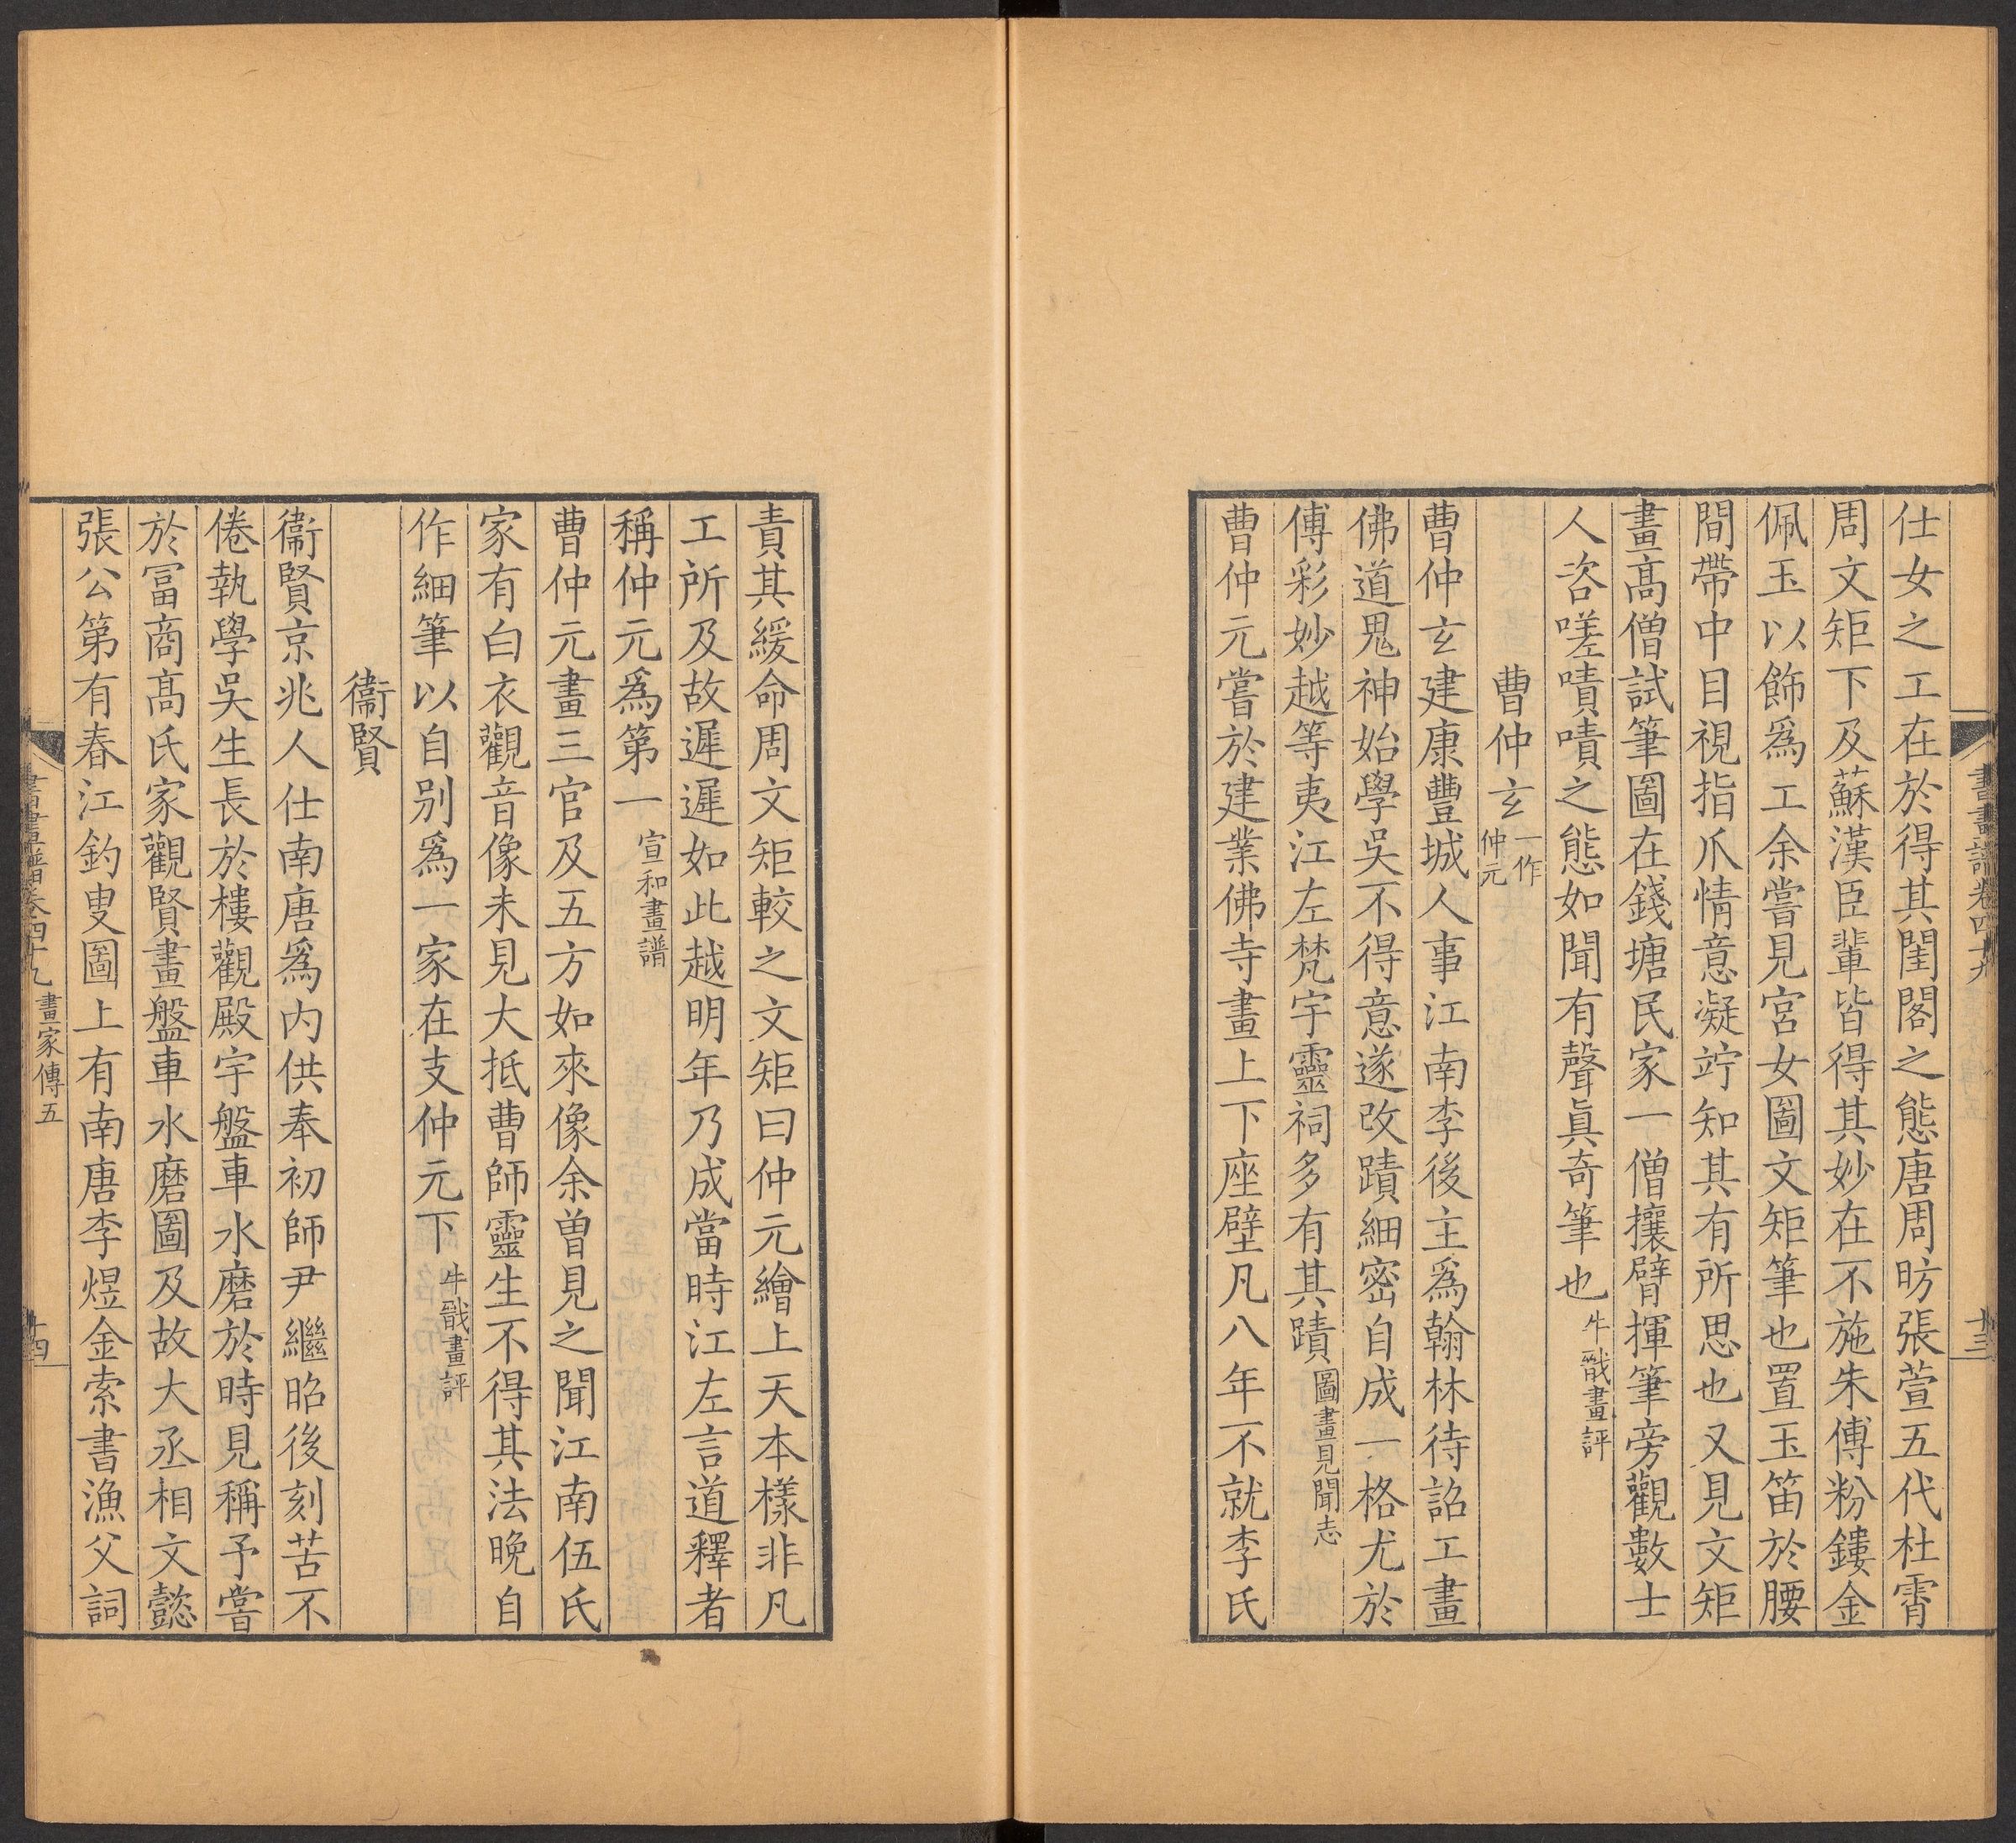 仕女之工在於得其閨閣之態唐周昉張萱五代杜霄
周文矩下及蘇漢臣輩皆得其妙在不施朱傅粉鏤金
佩玉以飾為工余嘗見宮女圖文矩筆也置玉笛於腰
間帶中目視指爪情意凝竚知其有所思也又見文矩
畫高僧試筆圖在錢塘民家一僧攘臂揮筆旁觀數士
人咨嗟嘖嘖之態如聞有聲真奇筆也牛戩畫評
曹仲玄一作仲元
曹仲玄建康豐城人事江南李後主為翰林待詔工畫
佛道鬼神始學吳不得意遂改蹟細密自成一格尤於
傅彩妙越等夷江左梵宇靈祠多有其蹟圖畫見聞志
曹仲元嘗於建業佛寺畫上下座壁凡八年不就李氏
書畫譜卷四十九
十三
責其緩命周文矩較之文矩曰仲元繪上天本樣非凡
工所及故遲遲如此越明年乃成當時江左言道釋者
稱仲元為第一宣和畫譜
曹仲元畫三官及五方如來像余曾見之聞江南伍氏
家有白衣觀音像未見大抵曹師靈生不得其法晚自
作細筆以自別為一家在支仲元下牛戩畫評
衞賢
衞賢京兆人仕南唐為內供奉初師尹繼昭後刻苦不
倦執學吳生長於樓觀殿宇盤車水磨於時見稱予嘗
於富商高氏家觀賢畫盤車水磨圖及故大丞相文懿
張公第有春江釣叟圖上有南唐李煜金索書漁父詞
書畫譜卷四十九 畫家傳五
十四